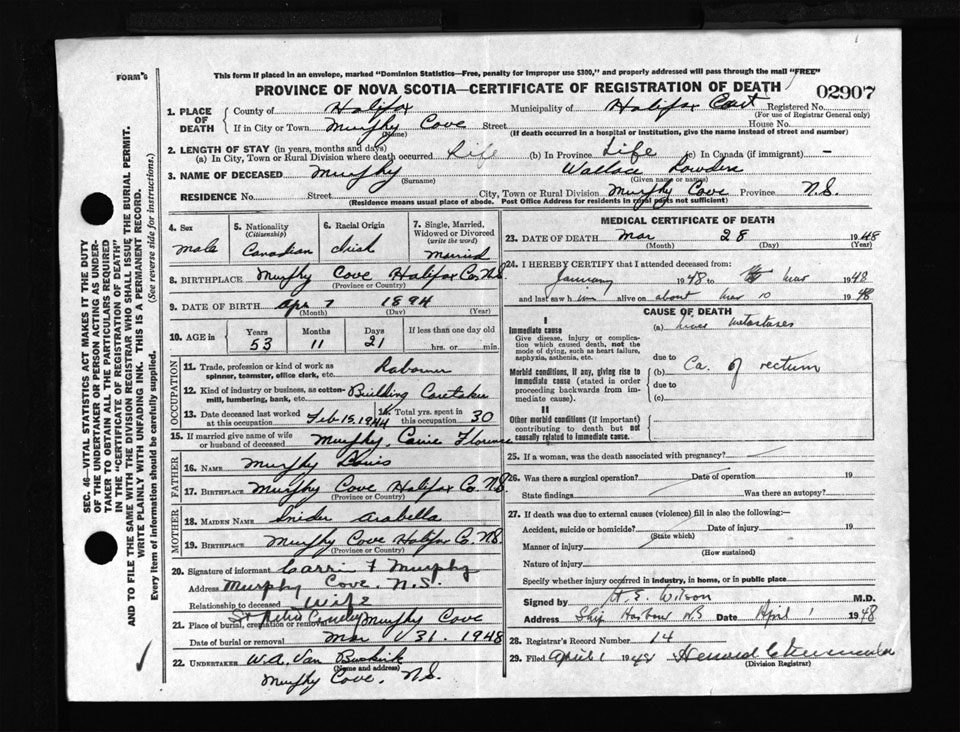 FORM 6
This form if placed in an envelope, marked "Dominion Statistics—Free, penalty for improper use $300," and properly addressed will pass through the mail "FREE"
PROVINCE OF NOVA SCOTIA—CERTIFICATE OF REGISTRATION OF DEATH
02907
1. PLACE OF DEATH County of Halifax Municipality of Halifax East Registered No.
(For use of Registrar General only)
If in City or Town Murphy Cove Street House No.
(Name) (If death occurred in a hospital or institution, give the name instead of street and number)
2. LENGTH OF STAY (in years, months and days)
(a) In City, Town or Rural Division where death occurred Life (b) In Province Life (c) In Canada (if immigrant) —
3. NAME OF DECEASED Murphy Wallace
(Surname) (Given name or names)
RESIDENCE No. Street City, Town or Rural Division Murphy Cove Province N.S.
(Residence means usual place of abode. Post Office Address for residents in rural parts not sufficient)
4. Sex 5. Nationality (Citizenship) 6. Racial Origin 7. Single, Married, Widowed or Divorced (write the word)
Male Canadian Irish Married
8. BIRTHPLACE Murphy Cove Halifax Co. N.S.
(Province or Country)
9. DATE OF BIRTH Apr 7 1894
(Month) (Day) (Year)
10. AGE in Years Months Days If less than one day old
53 11 21 hrs. or min.
OCCUPATION
11. Trade, profession or kind of work as spinner, teamster, office clerk, etc. Labourer
12. Kind of industry or business, as cotton-mill, lumbering, bank, etc. Building Caretaker
13. Date deceased last worked at this occupation Feb 15, 1944 14. Total yrs. spent in this occupation 30
15. If married give name of wife or husband of deceased Murphy, Carrie Florence
FATHER
16. NAME Murphy Louis
17. BIRTHPLACE Murphy Cove Halifax Co. N.S.
(Province or Country)
MOTHER
18. MAIDEN NAME Snider Arabella
19. BIRTHPLACE Murphy Cove Halifax Co. N.S.
(Province or Country)
20. Signature of informant Carri F Murphy
Address Murphy Cove. N.S.
Relationship to deceased Wife
21. Place of burial, cremation or removal St Peters Cemetery Murphy Cove
Date of burial or removal Mar 31. 1948
22. UNDERTAKER W.A. Van Buskirk
(Name and address)
Murphy Cove, N.S.
MEDICAL CERTIFICATE OF DEATH
23. DATE OF DEATH Mar 28 1948
(Month) (Day) (Year)
24. I HEREBY CERTIFY that I attended deceased from:
January 1948 to Mar 1948
and last saw him alive on about Mar 10 1948
CAUSE OF DEATH
I
Immediate cause
Give disease, injury or complication which caused death, not the mode of dying, such as heart failure, asphyxia, asthenia, etc.
(a) Liver metastases
due to
Morbid conditions, if any, giving rise to immediate cause (stated in order proceeding backwards from immediate cause).
(b) Ca. of rectum
due to
(c)
II
Other morbid conditions (if important) contributing to death but not causally related to immediate cause.
25. If a woman, was the death associated with pregnancy?
26. Was there a surgical operation? Date of operation 19
State findings Was there an autopsy?
27. If death was due to external causes (violence) fill in also the following:—
Accident, suicide or homicide? Date of injury 19
(State which)
Manner of injury
(How sustained)
Nature of injury
Specify whether injury occurred in industry, in home, or in public place
Signed by H. E. Wilson M.D.
Address Ship Harbour N.S Date April 1 1948
28. Registrar's Record Number 14
29. Filed April 1 1948
(Division Registrar)
SEC. 46—VITAL STATISTICS ACT MAKES IT THE DUTY
OF THE UNDERTAKER OR PERSON ACTING AS UNDER-
TAKER TO OBTAIN ALL THE PARTICULARS REQUIRED
IN THE "CERTIFICATE OF REGISTRATION OF DEATH"
AND TO FILE THE SAME WITH THE DIVISION REGISTRAR WHO SHALL ISSUE THE BURIAL PERMIT.
WRITE PLAINLY WITH UNFADING INK. THIS IS A PERMANENT RECORD.
Every item of information should be carefully supplied. (See reverse side for instructions.)